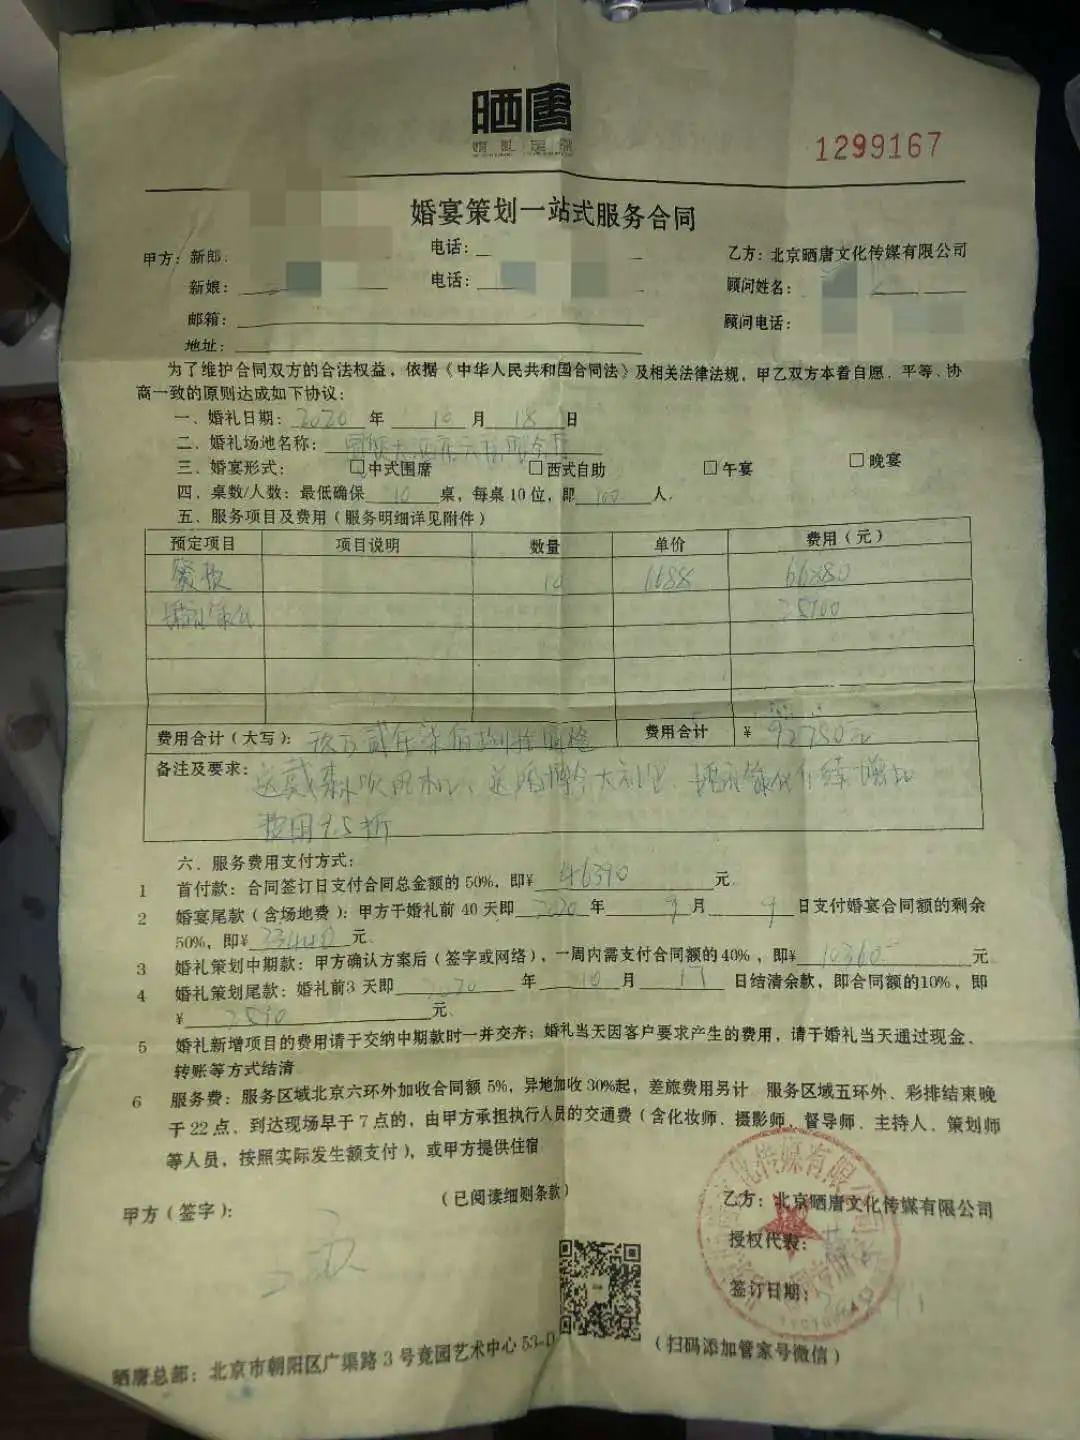 晒唐
1299167
婚宴策划一站式服务合同
甲方: 新郎: 电话: 乙方: 北京晒唐文化传媒有限公司
新娘: 电话: 顾问姓名:
邮箱: 顾问电话:
地址:
为了维护合同双方的合法权益，依据《中华人民共和国合同法》及相关法律法规，甲乙双方本着自愿、平等、协
商一致的原则达成如下协议:
一、婚礼日期: 2020 年 10 月 18 日
二、婚礼场地名称:
三、婚宴形式: □中式围席 □西式自助 □午宴 □晚宴
四、桌数/人数: 最低确保 10 桌，每桌10位，即 100 人.
五、服务项目及费用（服务明细详见附件）
预定项目 项目说明 数量 单价 费用（元）
餐饮 10 6688 66880
婚礼策划 25900
费用合计（大写）: 玖万贰仟柒佰捌拾圆整 费用合计 ¥ 92780元
备注及要求: 送戴森吹风机、送婚博会大礼包、婚礼策划后续增加
费用9.5折
六、服务费用支付方式:
1 首付款: 合同签订日支付合同总金额的 50%，即¥ 46390 元.
2 婚宴尾款（含场地费）: 甲方于婚礼前 40 天即 2020 年 9 月 9 日支付婚宴合同额的剩余
50%，即¥ 33440 元.
3 婚礼策划中期款: 甲方确认方案后（签字或网络），一周内需支付合同额的40%，即¥ 10360 元
4 婚礼策划尾款: 婚礼前3 天即 2020 年 10 月 17 日结清余款，即合同额的10%，即
¥ 2590 元.
5 婚礼新增项目的费用请于交纳中期款时一并交齐; 婚礼当天因客户要求产生的费用，请于婚礼当天通过现金、
转账等方式结清
6 服务费: 服务区域北京六环外加收合同额 5%，异地加收 30%起，差旅费用另计 服务区域五环外、彩排结束晚
于 22 点、到达现场早于 7 点的，由甲方承担执行人员的交通费（含化妆师、摄影师、督导师、主持人、策划师
等人员，按照实际发生额支付），或甲方提供住宿
（已阅读细则条款）
甲方（签字）: 乙方: 北京晒唐文化传媒有限公司
授权代表:
签订日期:
（扫码添加管家号微信）
晒唐总部: 北京市朝阳区广渠路 3 号竞园艺术中心 53-D